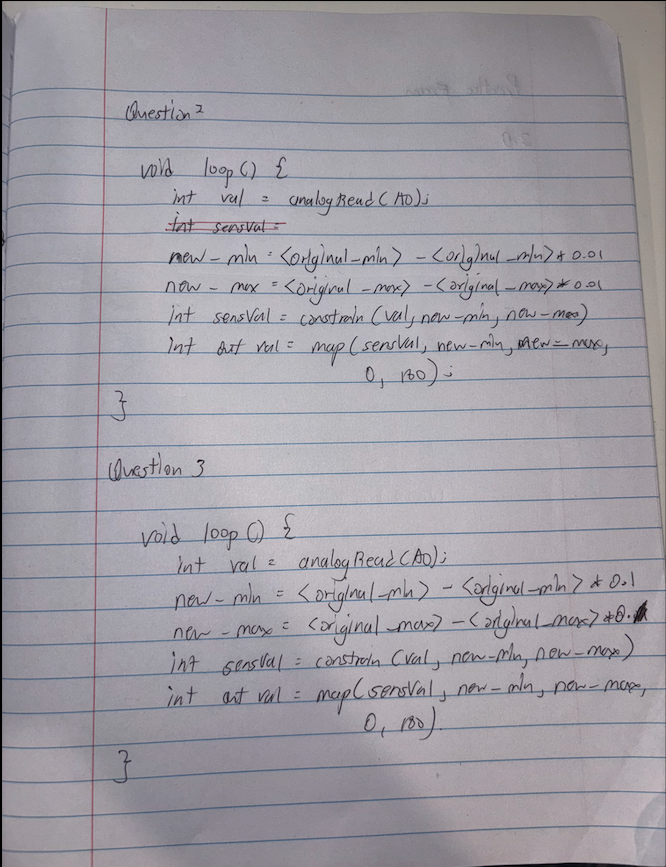 Question 2
void loop() {
int val = analogRead(A0);
int sensval =
new-min = <original_min> - <original_min> * 0.01
new - max = <original_max> - <original_max> * 0.01
int sensVal = constrain (val, new-min, new-max)
int out val = map(sensVal, new-min, new-max,
0, 180);
}
Question 3
void loop() {
int val = analogRead(A0);
new-min = <original_min> - <original_min> * 0.1
new-max = <original_max> - <original_max> * 0.1
int sensVal = constrain (val, new-min, new-max)
int out val = map(sensVal, new-min, new-max,
0, 180)
}